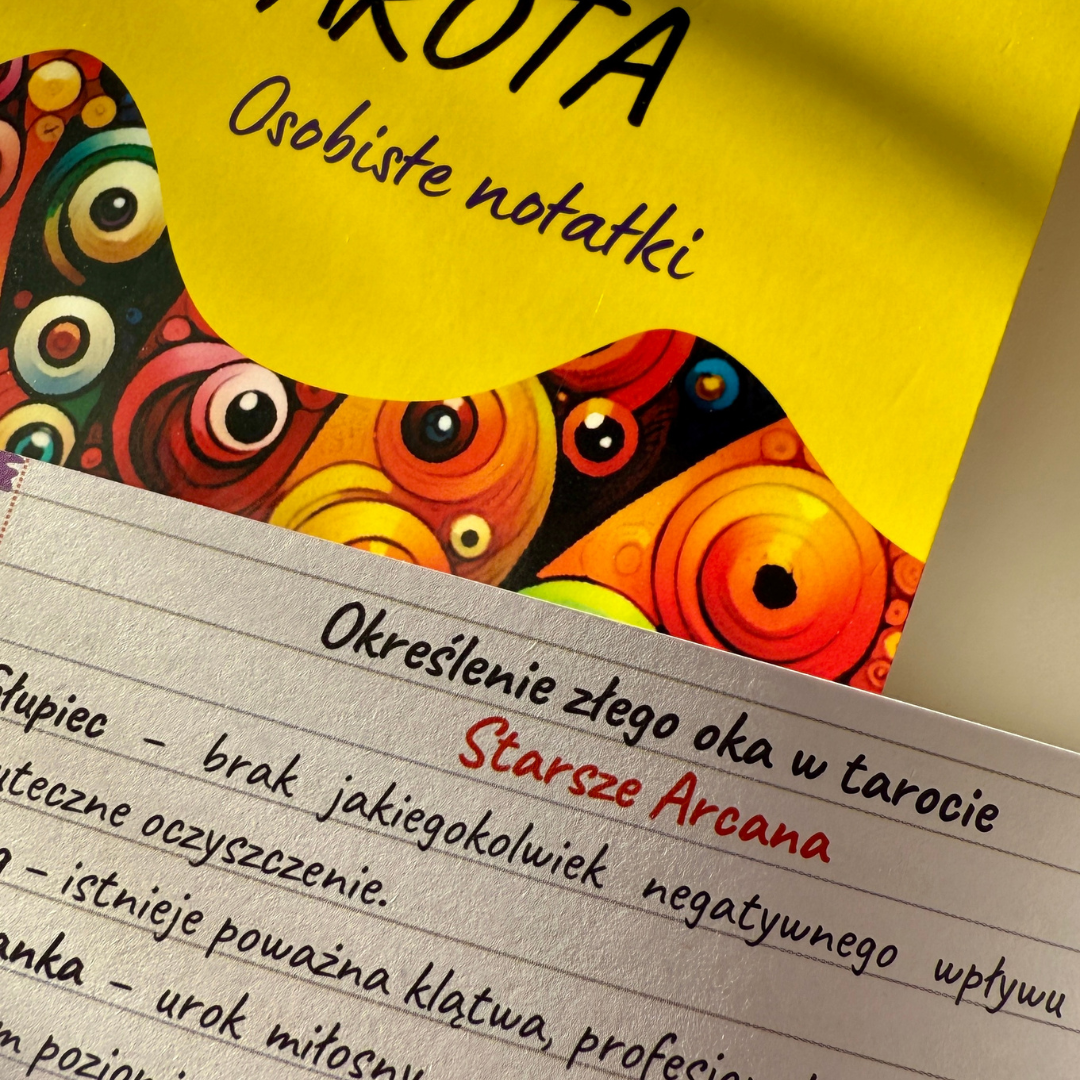 AROTA
Osobiste notatki
Określenie złego oka w tarocie
Starsze Arcana
Słupiec – brak jakiegokolwiek negatywnego wpływu
uteczne oczyszczenie.
– istnieje poważna klątwa,
anka – urok miłosny
m